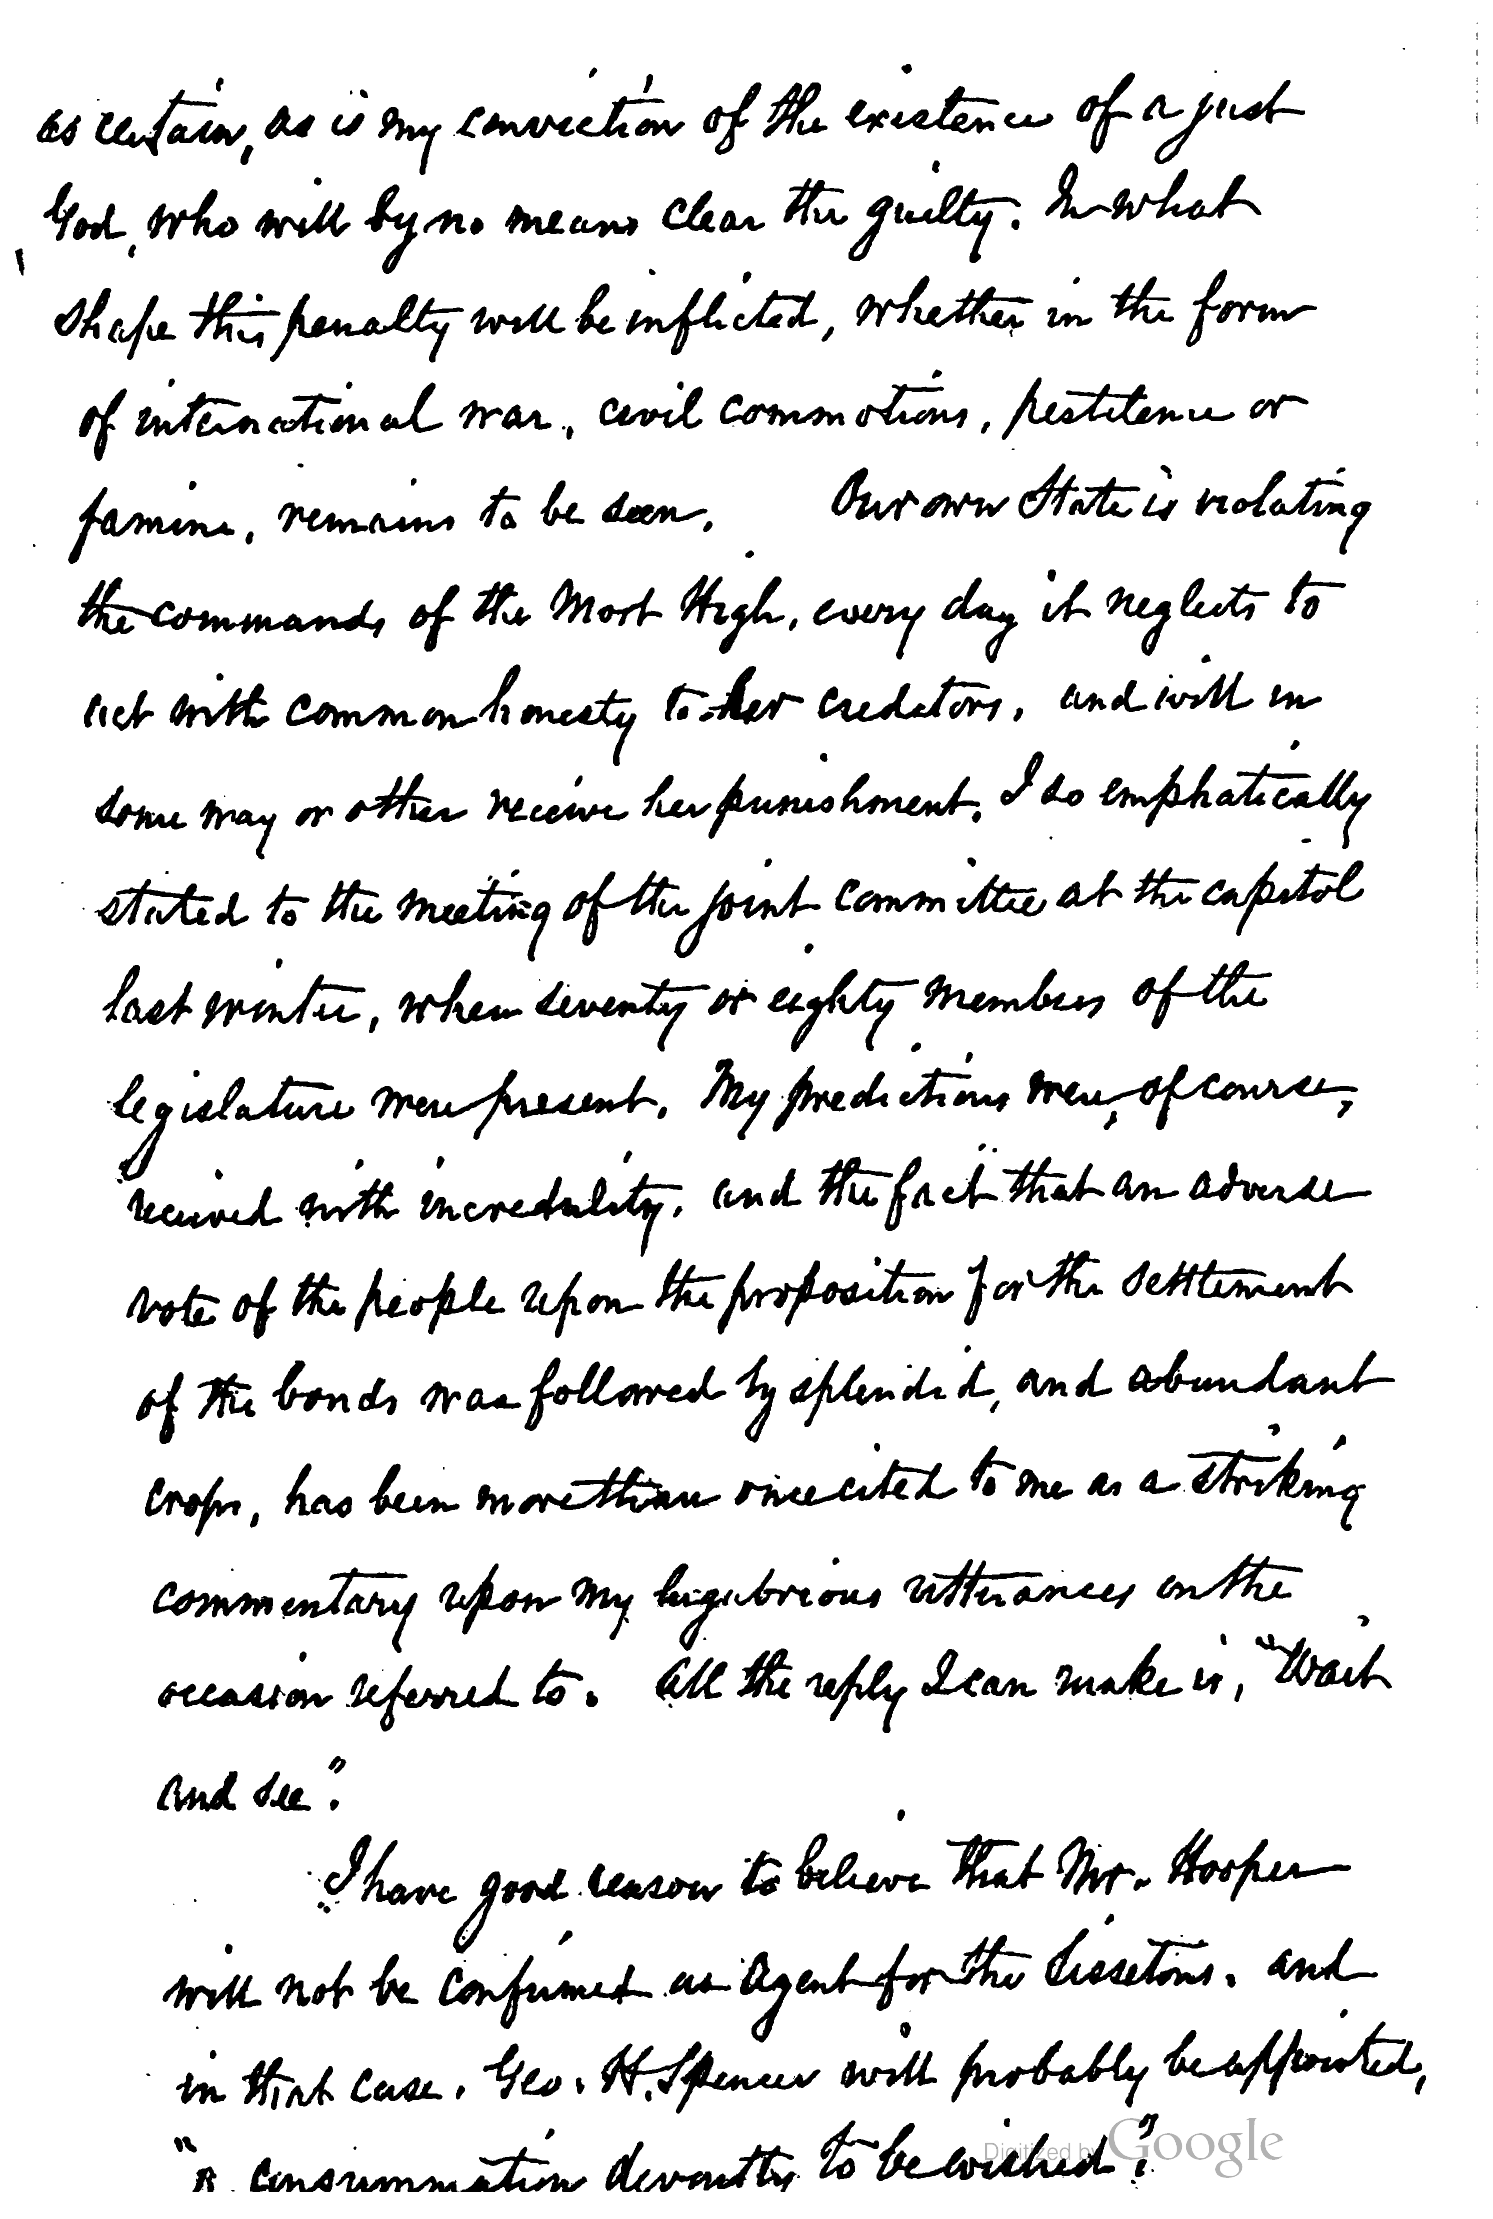 as certain, as is my conviction of the existence of a just
God, who will by no means clear the guilty. In what
shape this penalty will be inflicted, whether in the form
of international war, civil commotions, pestilence or
famine, remains to be seen. Our own State is violating
the commands of the Most High, every day it neglects to
act with common honesty to her creditors, and will in
some way or other receive her punishment. I so emphatically
stated to the meeting of the joint committee at the capitol
last winter, when seventy or eighty members of the
legislature were present. My predictions were, of course,
received with incredulity, and the fact that an adverse
vote of the people upon the proposition for the settlement
of the bonds was followed by splendid, and abundant
crops, has been more than once cited to me as a striking
commentary upon my lugubrious utterances on the
occasion referred to. All the reply I can make is, "Wait
and see".
I have good reason to believe that Mr. Hooper
will not be confirmed as Agent for the Sissetons, and
in that case, Geo. H. Spencer will probably be appointed,
"a consummation devoutly to be wished".
Digitized by Google